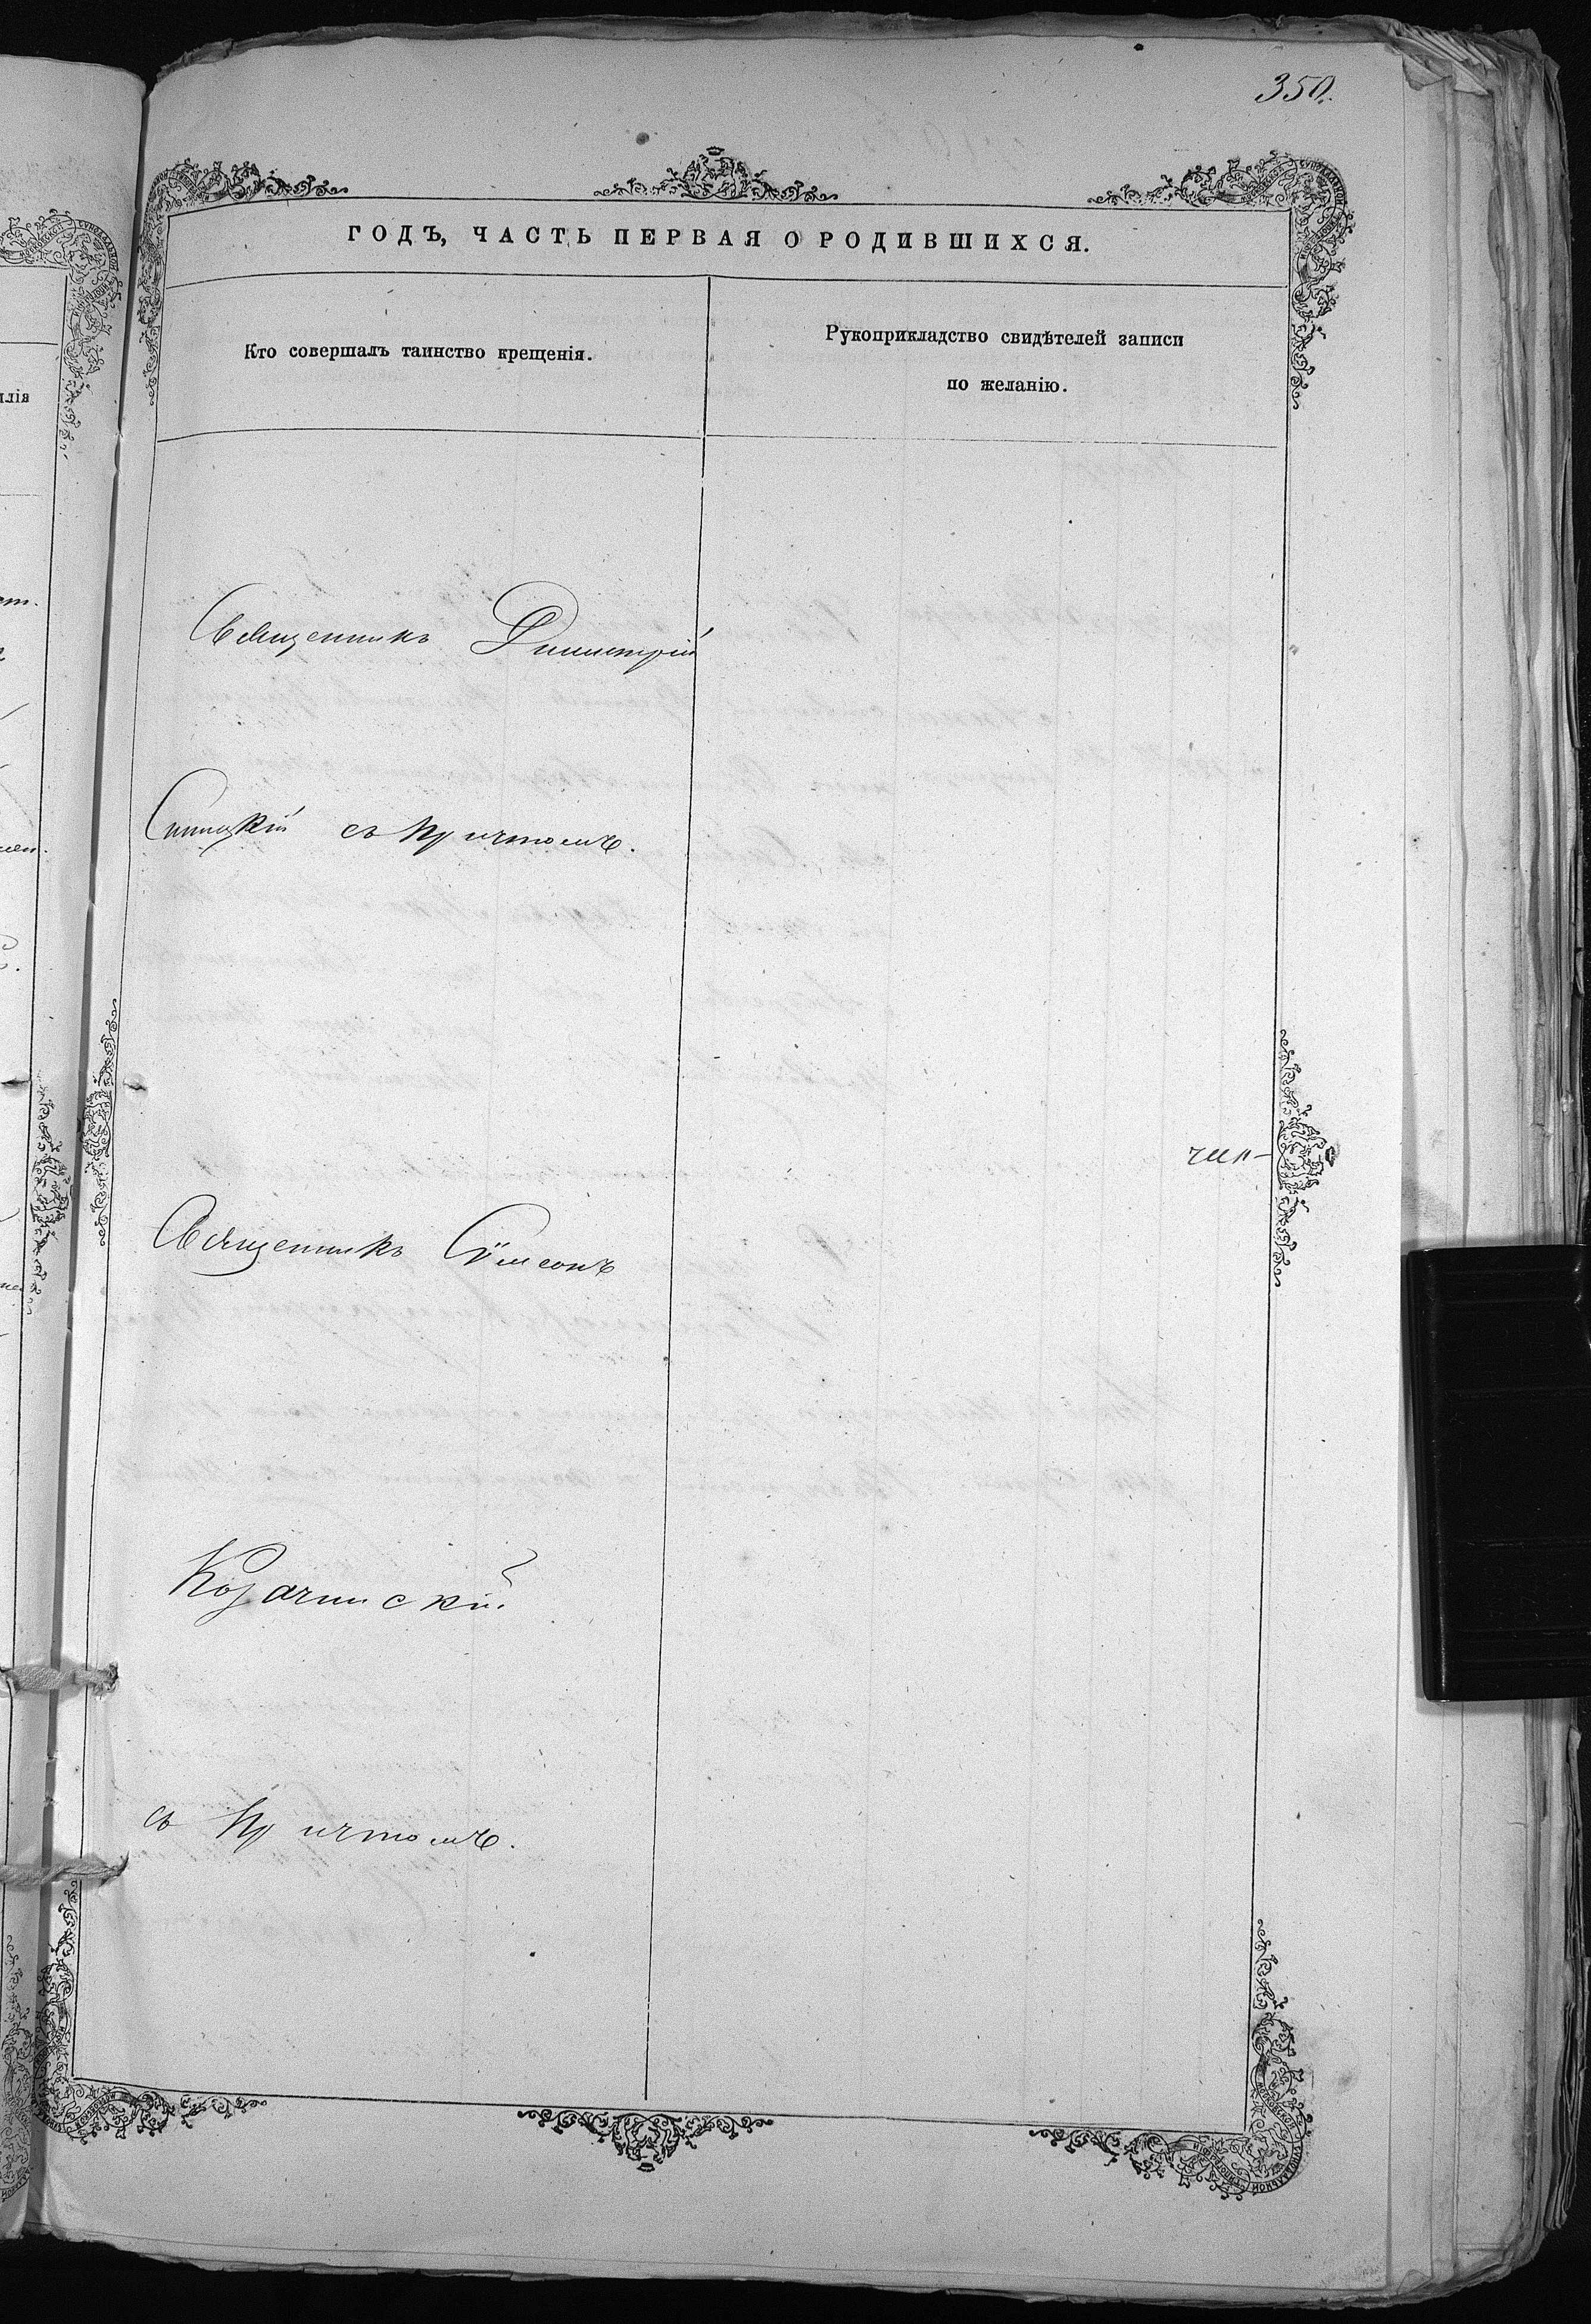 350.
ГОДЪ, ЧАСТЬ ПЕРВАЯ О РОДИВШИХСЯ.
Кто совершалъ таинство крещенія.
Рукоприкладство свидѣтелей записи
по желанію.
Священникъ Димитрій
Синицкій съ причтомъ.
Священникъ Сѵмеонъ
Козачинскій
съ причтомъ.